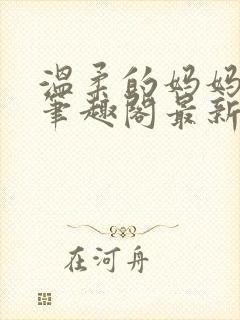 温柔的妈妈
笔趣阁最新
在河舟